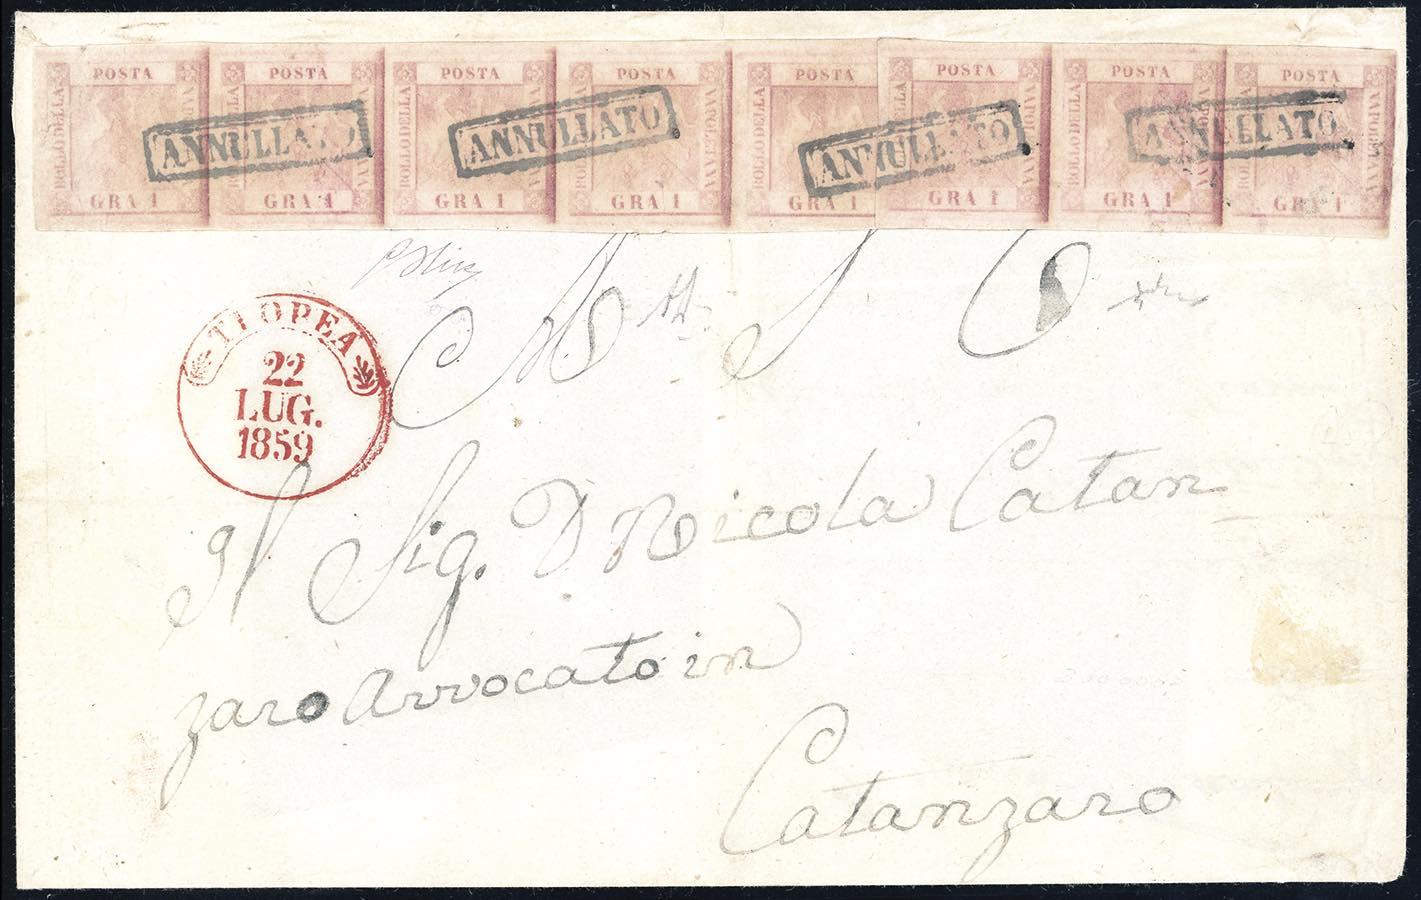 POSTA POSTA POSTA POSTA POSTA POSTA POSTA POSTA
BOLLO DELLA BOLLO DELLA BOLLO DELLA BOLLO DELLA BOLLO DELLA BOLLO DELLA BOLLO DELLA
NAPOLETANA
ANNULLATO ANNULLATO ANNULLATO ANNULLATO
GRA 1 GRA 1 GRA 1 GRA 1 GRA 1 GRA 1 GRA 1 GRA 1
TROPEA
22
LUG.
1859
Il Sig. D Nicola Catan
zaro Avvocato in
Catanzaro